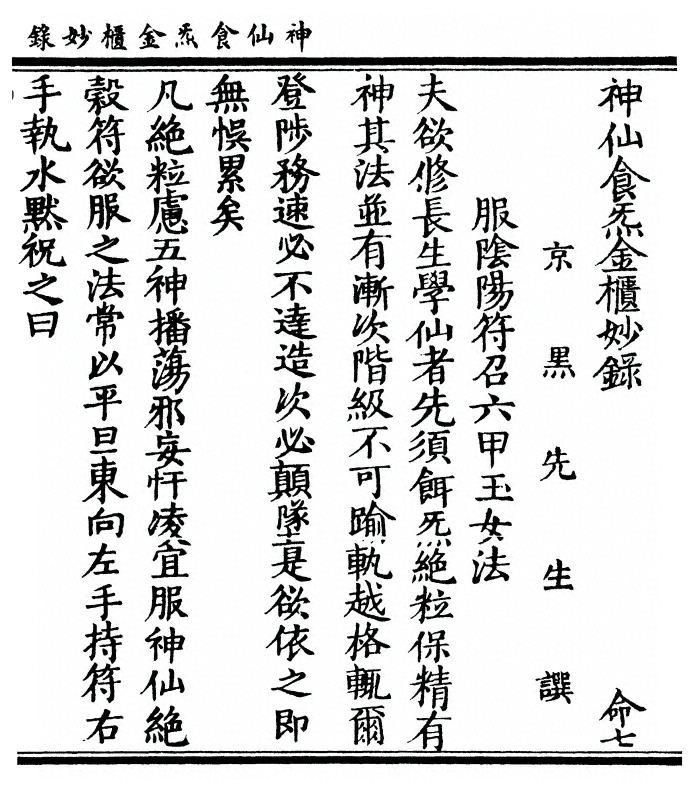 神仙食炁金櫃妙錄
神仙食炁金櫃妙錄 命七
京黑先生譔
服陰陽符召六甲玉女法
夫欲修長生學仙者先須餌炁絕粒保精有
神其法並有漸次階級不可踰軌越格輒爾
登陟務速必不達造次必顛墜若是欲依之即
無悞累矣
凡絕粒慮五神播蕩邪妄忓凌宜服神仙絕
穀符欲服之法常以平旦東向左手持符右
手執水默祝之曰